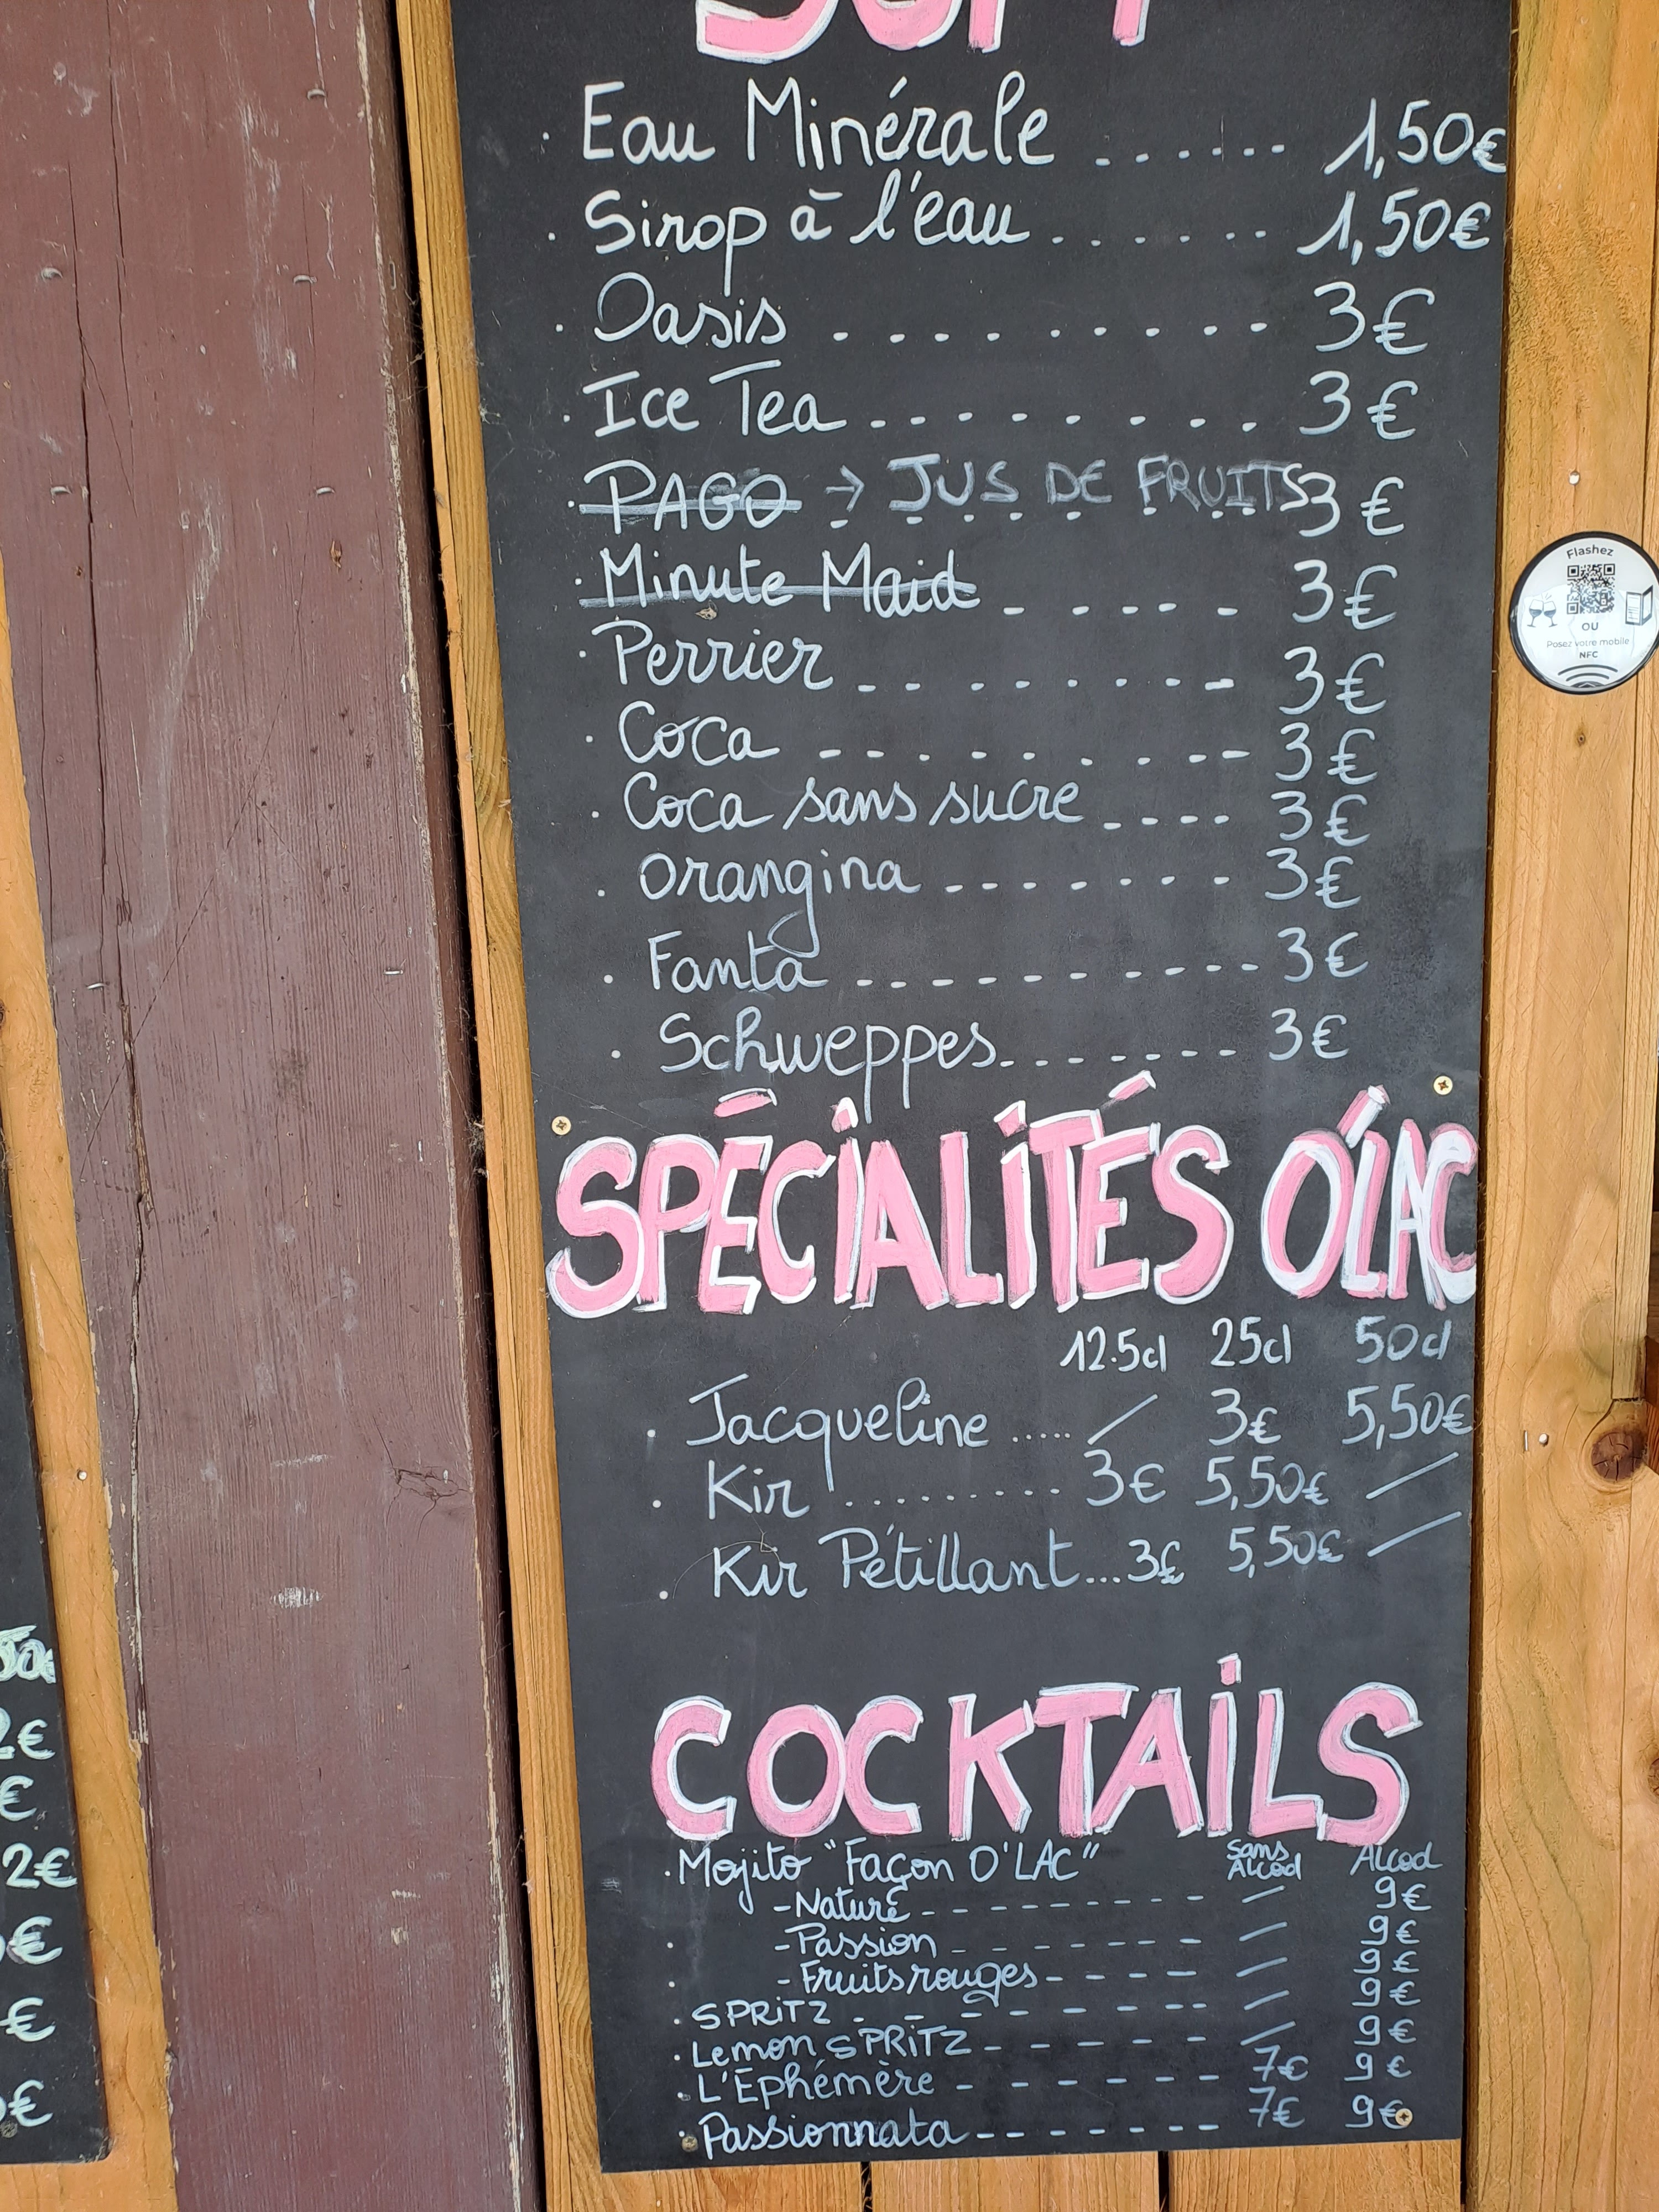 SOFT
. Eau Minérale ...... 1,50€
. Sirop à l'eau ....... 1,50€
. Oasis .......... 3€
. Ice Tea ......... 3€
. PAGO → JUS DE FRUITS 3€
. Minute Maid ...... 3€
. Perrier ......... 3€
. Coca .......... 3€
. Coca sans sucre .... 3€
. Orangina ....... 3€
. Fanta .......... 3€
. Schweppes ....... 3€
SPÉCIALITÉS O'LAC
12.5cl 25cl 50cl
. Jacqueline ..... / 3€ 5,50€
. Kir ......... 3€ 5,50€ /
. Kir Pétillant ... 3€ 5,50€ /
COCKTAILS
. Mojito "Façon O'LAC" Sans Alcool Alcool
- Nature - - - - - - - - / 9€
. - Passion - - - - - - - / 9€
. - Fruits rouges - - - - - / 9€
. SPRiTZ - - - - - - - - / 9€
. Lemon SPRiTZ - - - - - - / 9€
. L'Éphémère - - - - - - 7€ 9€
. Passionnata - - - - - - 7€ 9€
Flashez
OU
Posez votre mobile
NFC
2€
€
2€
€
€
€